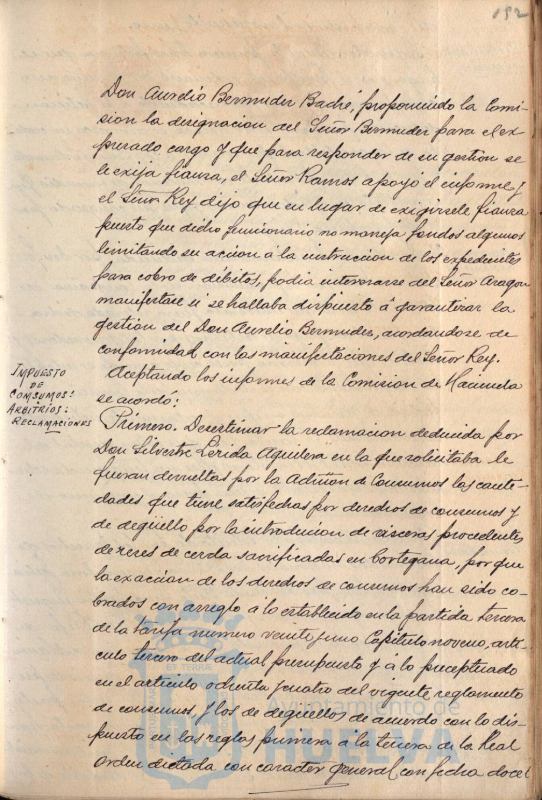 192
Don Aurelio Bermudez Baché, proponiendo la Comi-
sion la designacion del Señor Bermudez para el ex-
presado cargo y que para responder de su gestion se
le exija fianza, el Señor Ramos apoyó el informe y
el Señor Rey dijo que en lugar de exigirsele fianza
puesto que dicho funcionario no maneja fondos algunos
limitando su accion á la instruccion de los expedientes
para cobro de débitos, podia interesarse del Señor Aragon
manifestase si se hallaba dispuesto á garantizar la
gestion del Don Aurelio Bermudez, acordandose de
conformidad con las manifestaciones del Señor Rey.
Aceptando los informes de la Comision de Hacienda
se acordó:
IMPUESTO
DE
CONSUMOS:
ARBITRIOS:
RECLAMACIONES
Primero. Desestimar la reclamacion deducida por
Don Silvestre Lérida Aguilera en la que solicitaba le
fueran devueltas por la Admon de Consumos las canti-
dades que tiene satisfechas por derechos de consumos y
de degüello por la introducion de visceras procedentes
de reses de cerda sacrificadas en Cortegana, por que
la exaccion de los derechos de consumos han sido co-
brados con arreglo á lo establecido en la partida tercera
de la tarifa numero veintiuno Capitulo noveno, arti-
culo tercero del actual presupuesto y a lo preceptuado
en el articulo ochenta y cuatro del vigente reglamento
de consumos y los de degüellos de acuerdo con lo dis-
puesto en las reglas primera á la tercera de la Real
orden dictada con caracter general, con fecha doce
Ayuntamiento de
HUELVA